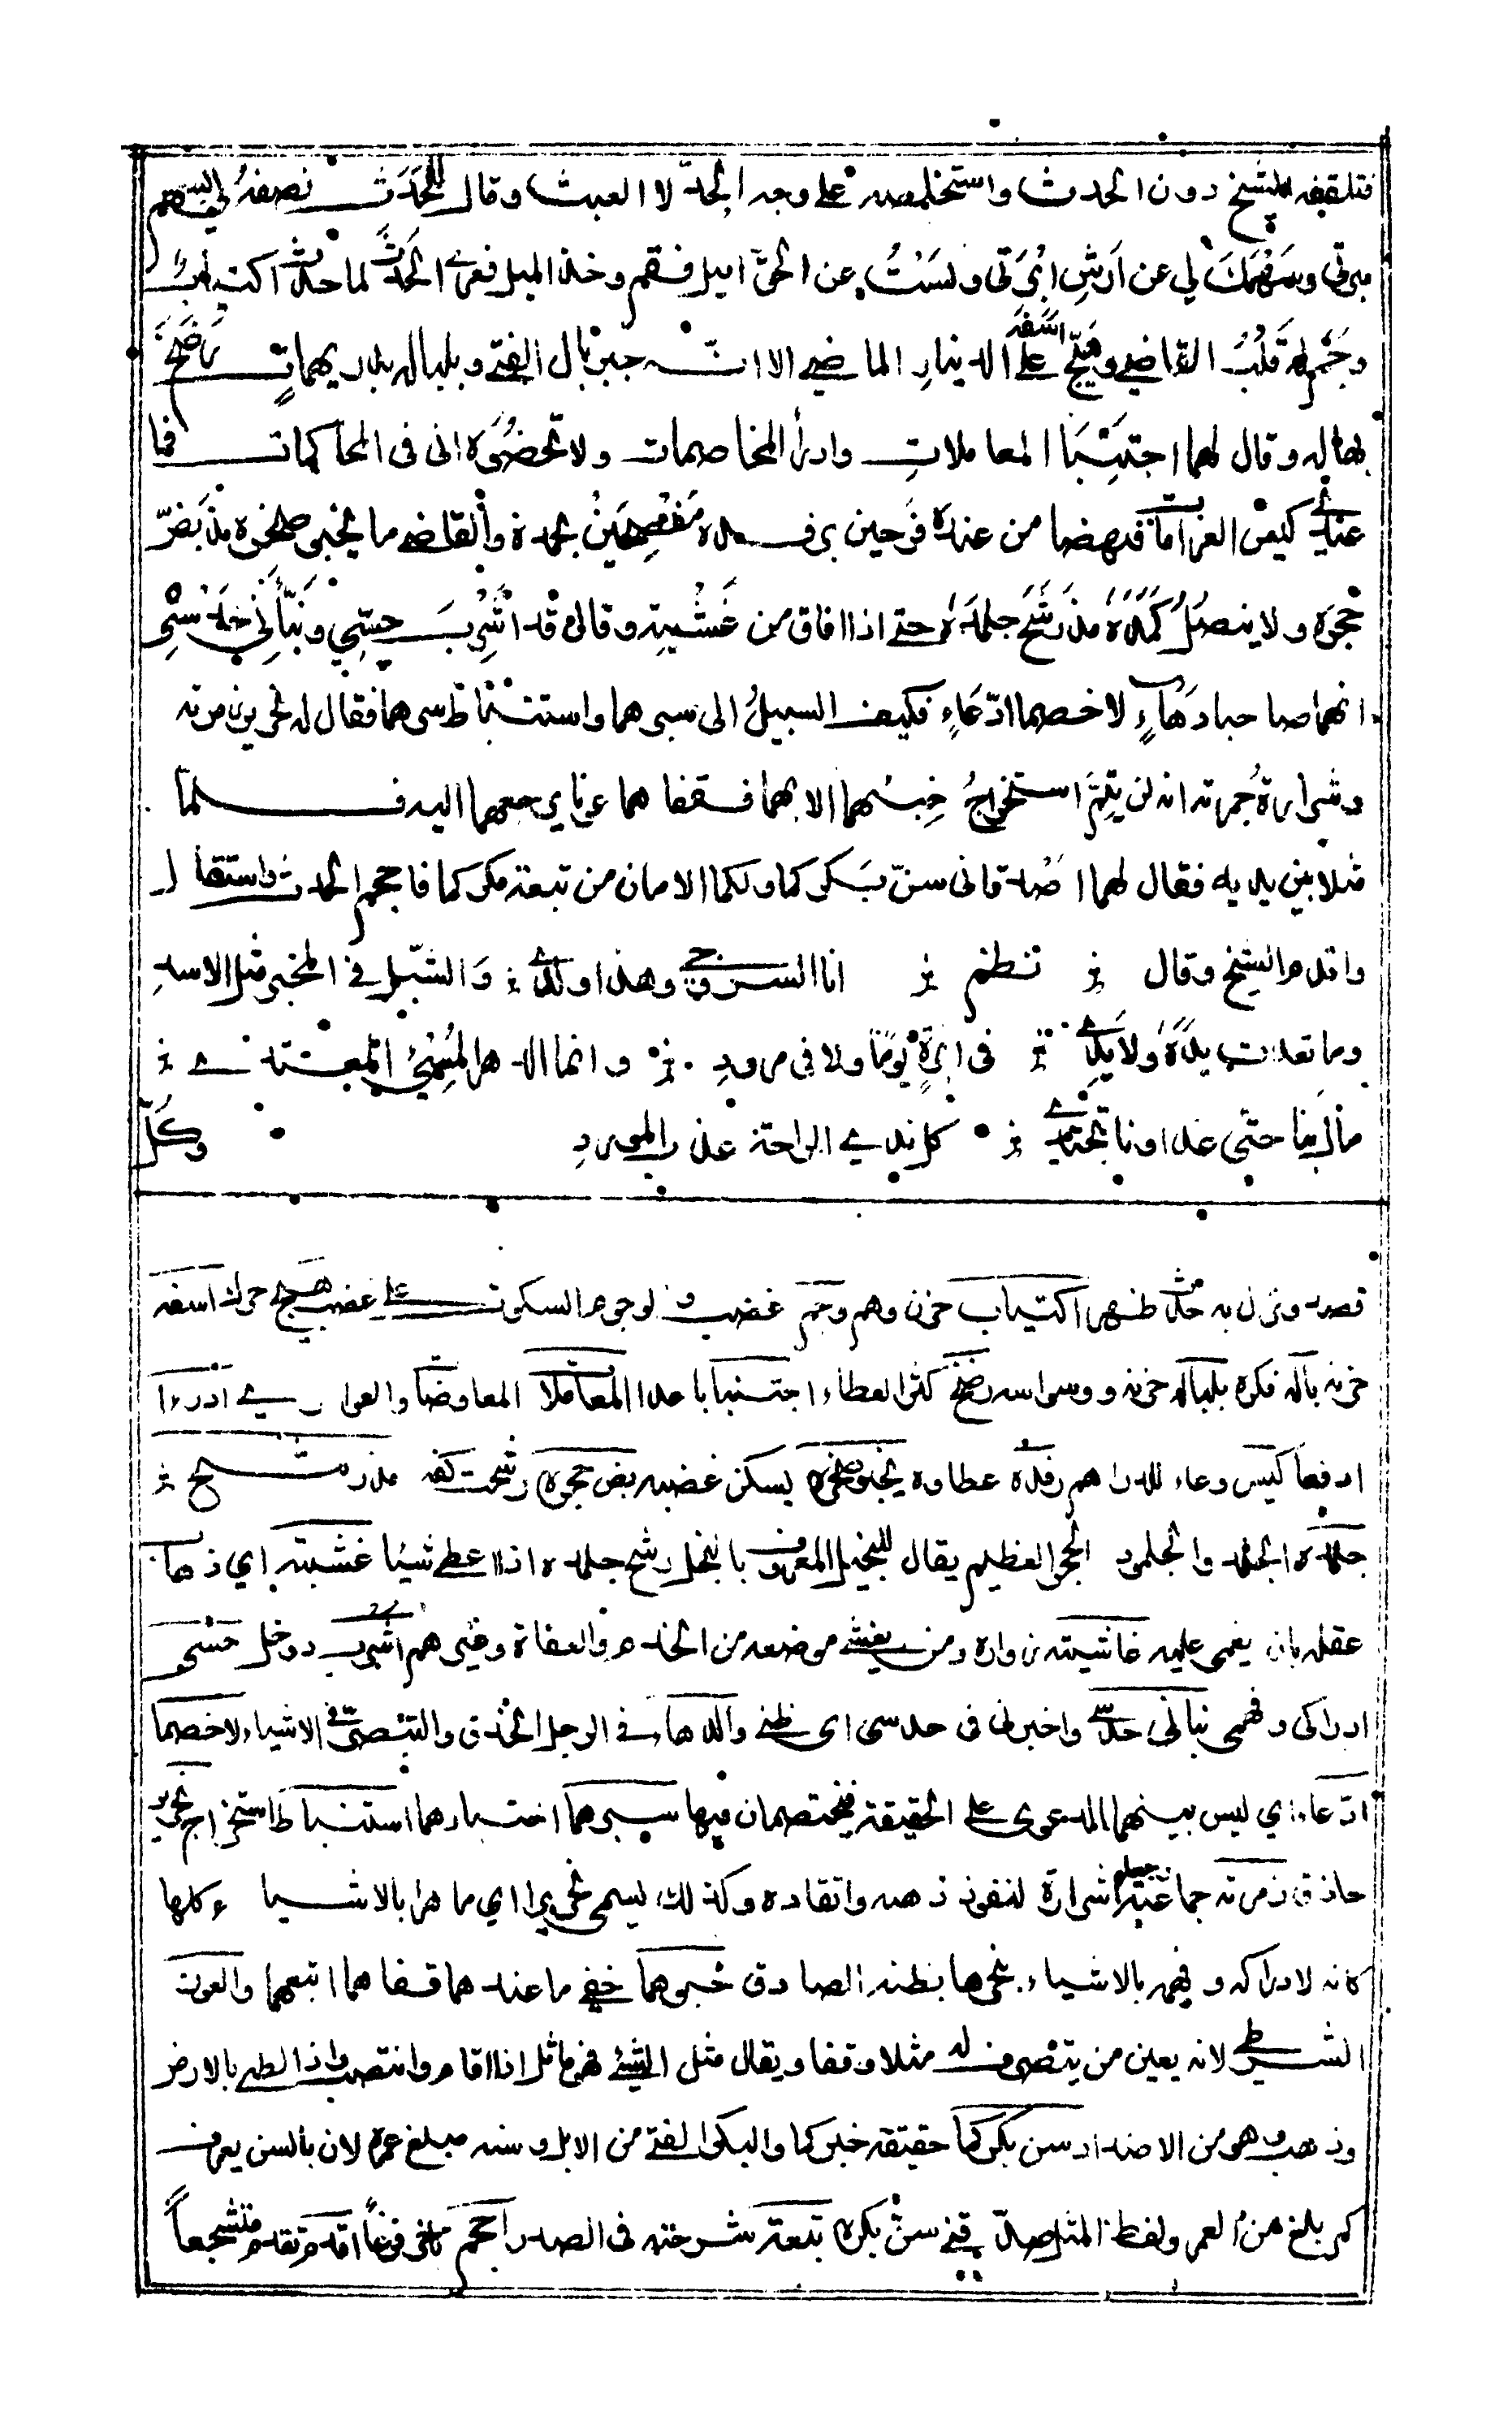 فتلقفه الشيخ دون الحدث واستخلصه على وجه الجدّ لا العبث وقال للحَدَث نصفهُ لي بسهم
مبرتي وسَهْمُكَ لي عن اَرْشِ اِبْرَتي ولسَتُ عن الحقّ اميل فقم وخذ الميل فعرى الحَدَثَ لما حدث اكتيابٌ
وجَمَ لهُ قَلْبُ القاضي وهيّج اسَفَهُ على الدينارِ الماضي الا انّه جبر بال الفتى وبلباله بدريهماتٍ رَضَخَ
بها له وقال لهما اجتَنِبَا المعاملاتِ وادرأ المخاصمات ولا تحضُرَاني في المحاكمات فما
عندي كيس الغرامات فنهضا من عنده فرحين برفده مُفْصِحَيْنِ بحمده والقاضي ما يخبو ضجره مذ بَضّ
حجره ولا ينصُلُ كَمَدُهُ مذ رَشَحَ جلمَدُهُ حتى اذا افاق من غَشْيتِه وقال قد اُشْرِبَ حِسّي ونَبّأَني حَدْسي
انهما صاحبا دَهَاءٍ لا خصما ادّعَاءٍ فكيف السبيلُ الى سبرهما واستنباط سرهما فقال له نحرير زمرته
وشرارة جُمرته انه لن يتِمّ استخراجُ خِبْئهما الا بهما فقفاهما عونا يرجعهما اليه فلما
مثلا بين يديه فقال لهما اصْدقاني سنّ بَكركما ولكما الامان من تبعة مكركما فاحجم الحدث واستقال
واقدم الشيخ وقال نظم انا السروجي وهذا ولدي والشبل في المخبر مثل الاسدِ
وما تعدت يدُهُ ولا يَدِي في ابرةٍ يوْمًا ولا في مرودِ وانما الدهر المُسِيْئُ المعتدي
مال بنا حتى غدونا نجتدي كل ندي الراحة عذب الموردِ وكلّ
قصد ونزل به حدث ظهر اكتياب حزن وهم وجم غضب و لوجوم السكوت على غضب هيّج حرك اسفه
حزنه باله فكره بلباله حزنه ووسواسه رضخ كثر العطاء اجتنبا باعدا المعاملات المعاوضات والعوا ري ادرءا
ادفعا كيس وعاء للدراهم رفده عطاوه يخبو ضجره يسكن غضبه بض حجره رشحت كفه مذ رشح
جلمده الجلمد والجلمود الحجر العظيم يقال للبخيل المعروف بالبخل رشح جلمده اذا اعطى شيئا غشيته اي ذهاب
عقله بان يغمى عليه غاشيته زواره ومن يغشى موضعه من الخدم والعفاة وغيرهم اشرب دوخل حسي
ادراكي وفهمي نبأني حدسي واخبرني في حدسي اى ظني والدهاء في الرجل الحذق والتبصر في الاشياء لا خصما
ادّعاء اي ليس بينهما الدعوى على الحقيقة فيختصمان فيها سبرهما اختبارهما استنباط استخراج نحرير
حاذق زمرته جماعته شرارة لنفوذ ذهنه واتقاده وكذلك ليسمى نحريرا اي ماهرا بالاشيا ء كلها
كانه لادراكه وفهمه بالاشياء ينحرها بظنه الصادق خبوهما خفي ما عندهما قفاهما اتبعهما والعون
الشرطي لانه يعين من يتصرف له مثلا وقفا ويقال مثل الشيئ فهو ماثل اذا اقام وانتصب واذا لطى بالارض
وذهب وهو من الاضداد سن بكركما حقيقة خبركما والبكر الفتى من الابل وسنه مبلغ عمره لان بالسن يعرف
كم بلغ من العمر ولفظ المثل صدقني سنّ بكره تبعة شر خته في الصدر احجم تاخر فزعا اقدم تقدم متشجعاً